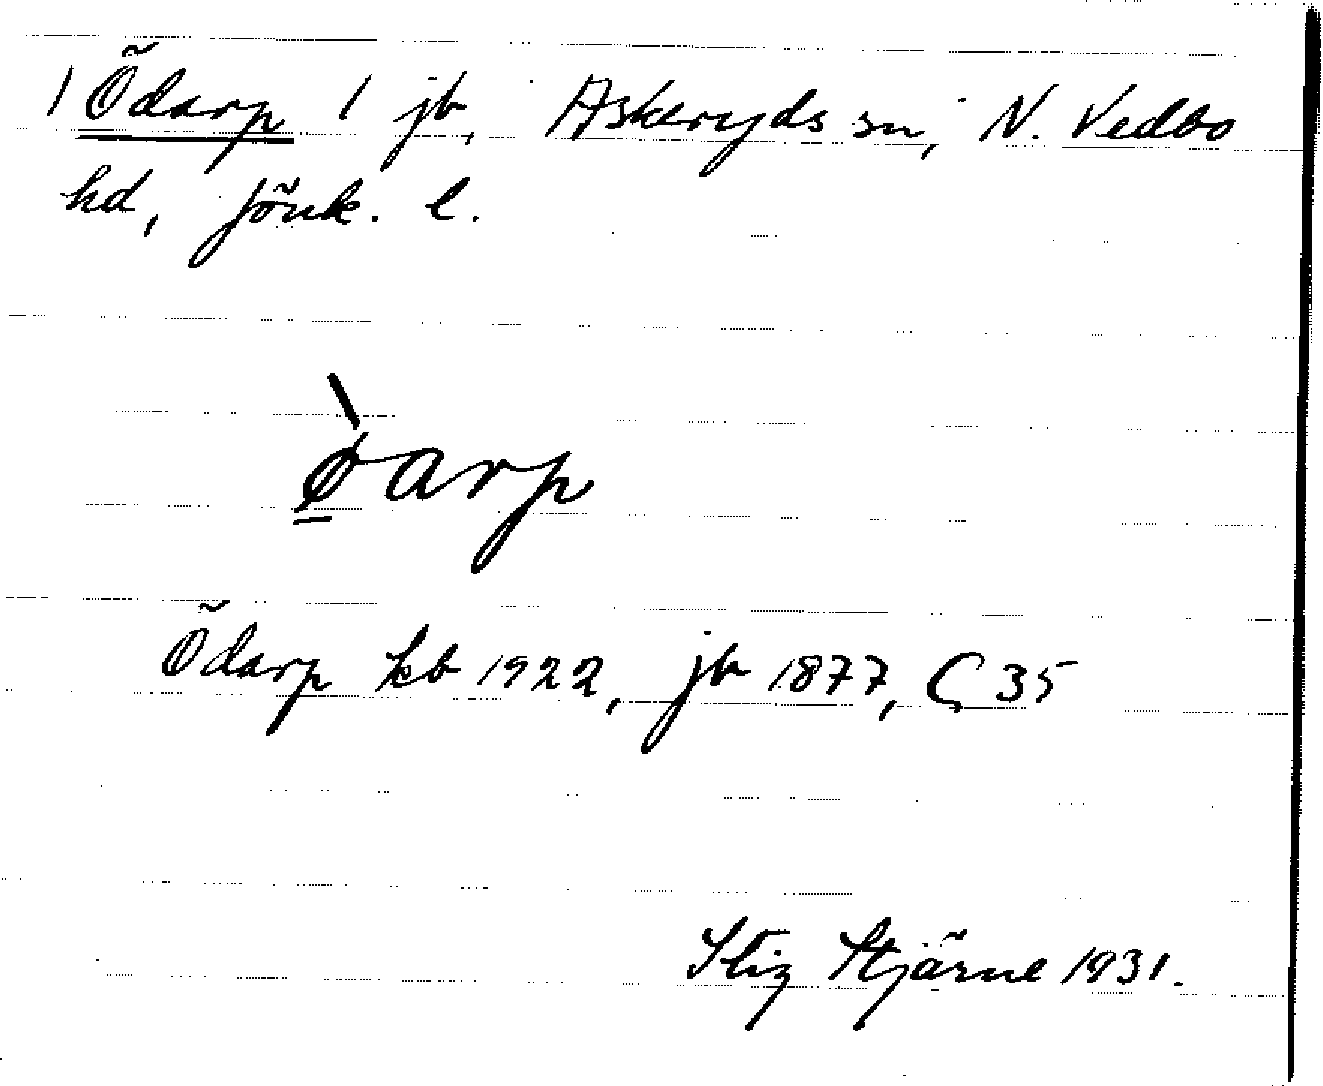 1 Ödarp 1 jb, Askeryds sn, N. Vedbo
hd, Jönk. l.
ø̀arp
Ödarp kb 1922, jb 1877, C 35
Stig Stjärne 1931.